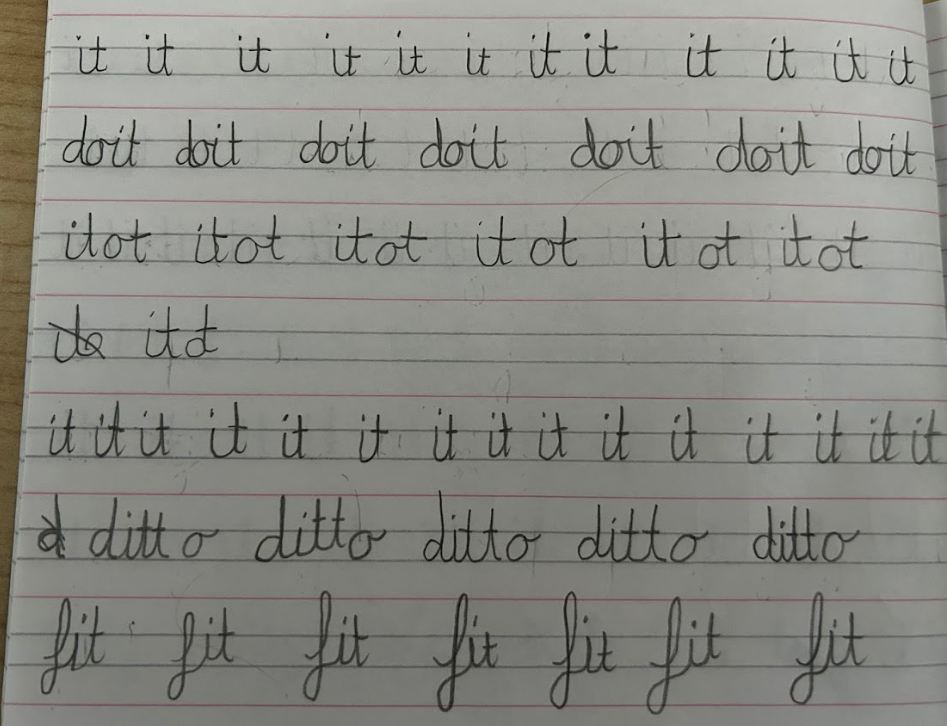 it it it it it it it it it it it it
doit doit doit doit doit doit doit
itot itot itot it ot it ot itot
itd
it it it it it it it it it it it it it it it
d ditto ditto ditto ditto ditto
fit fit fit fit fit fit fit